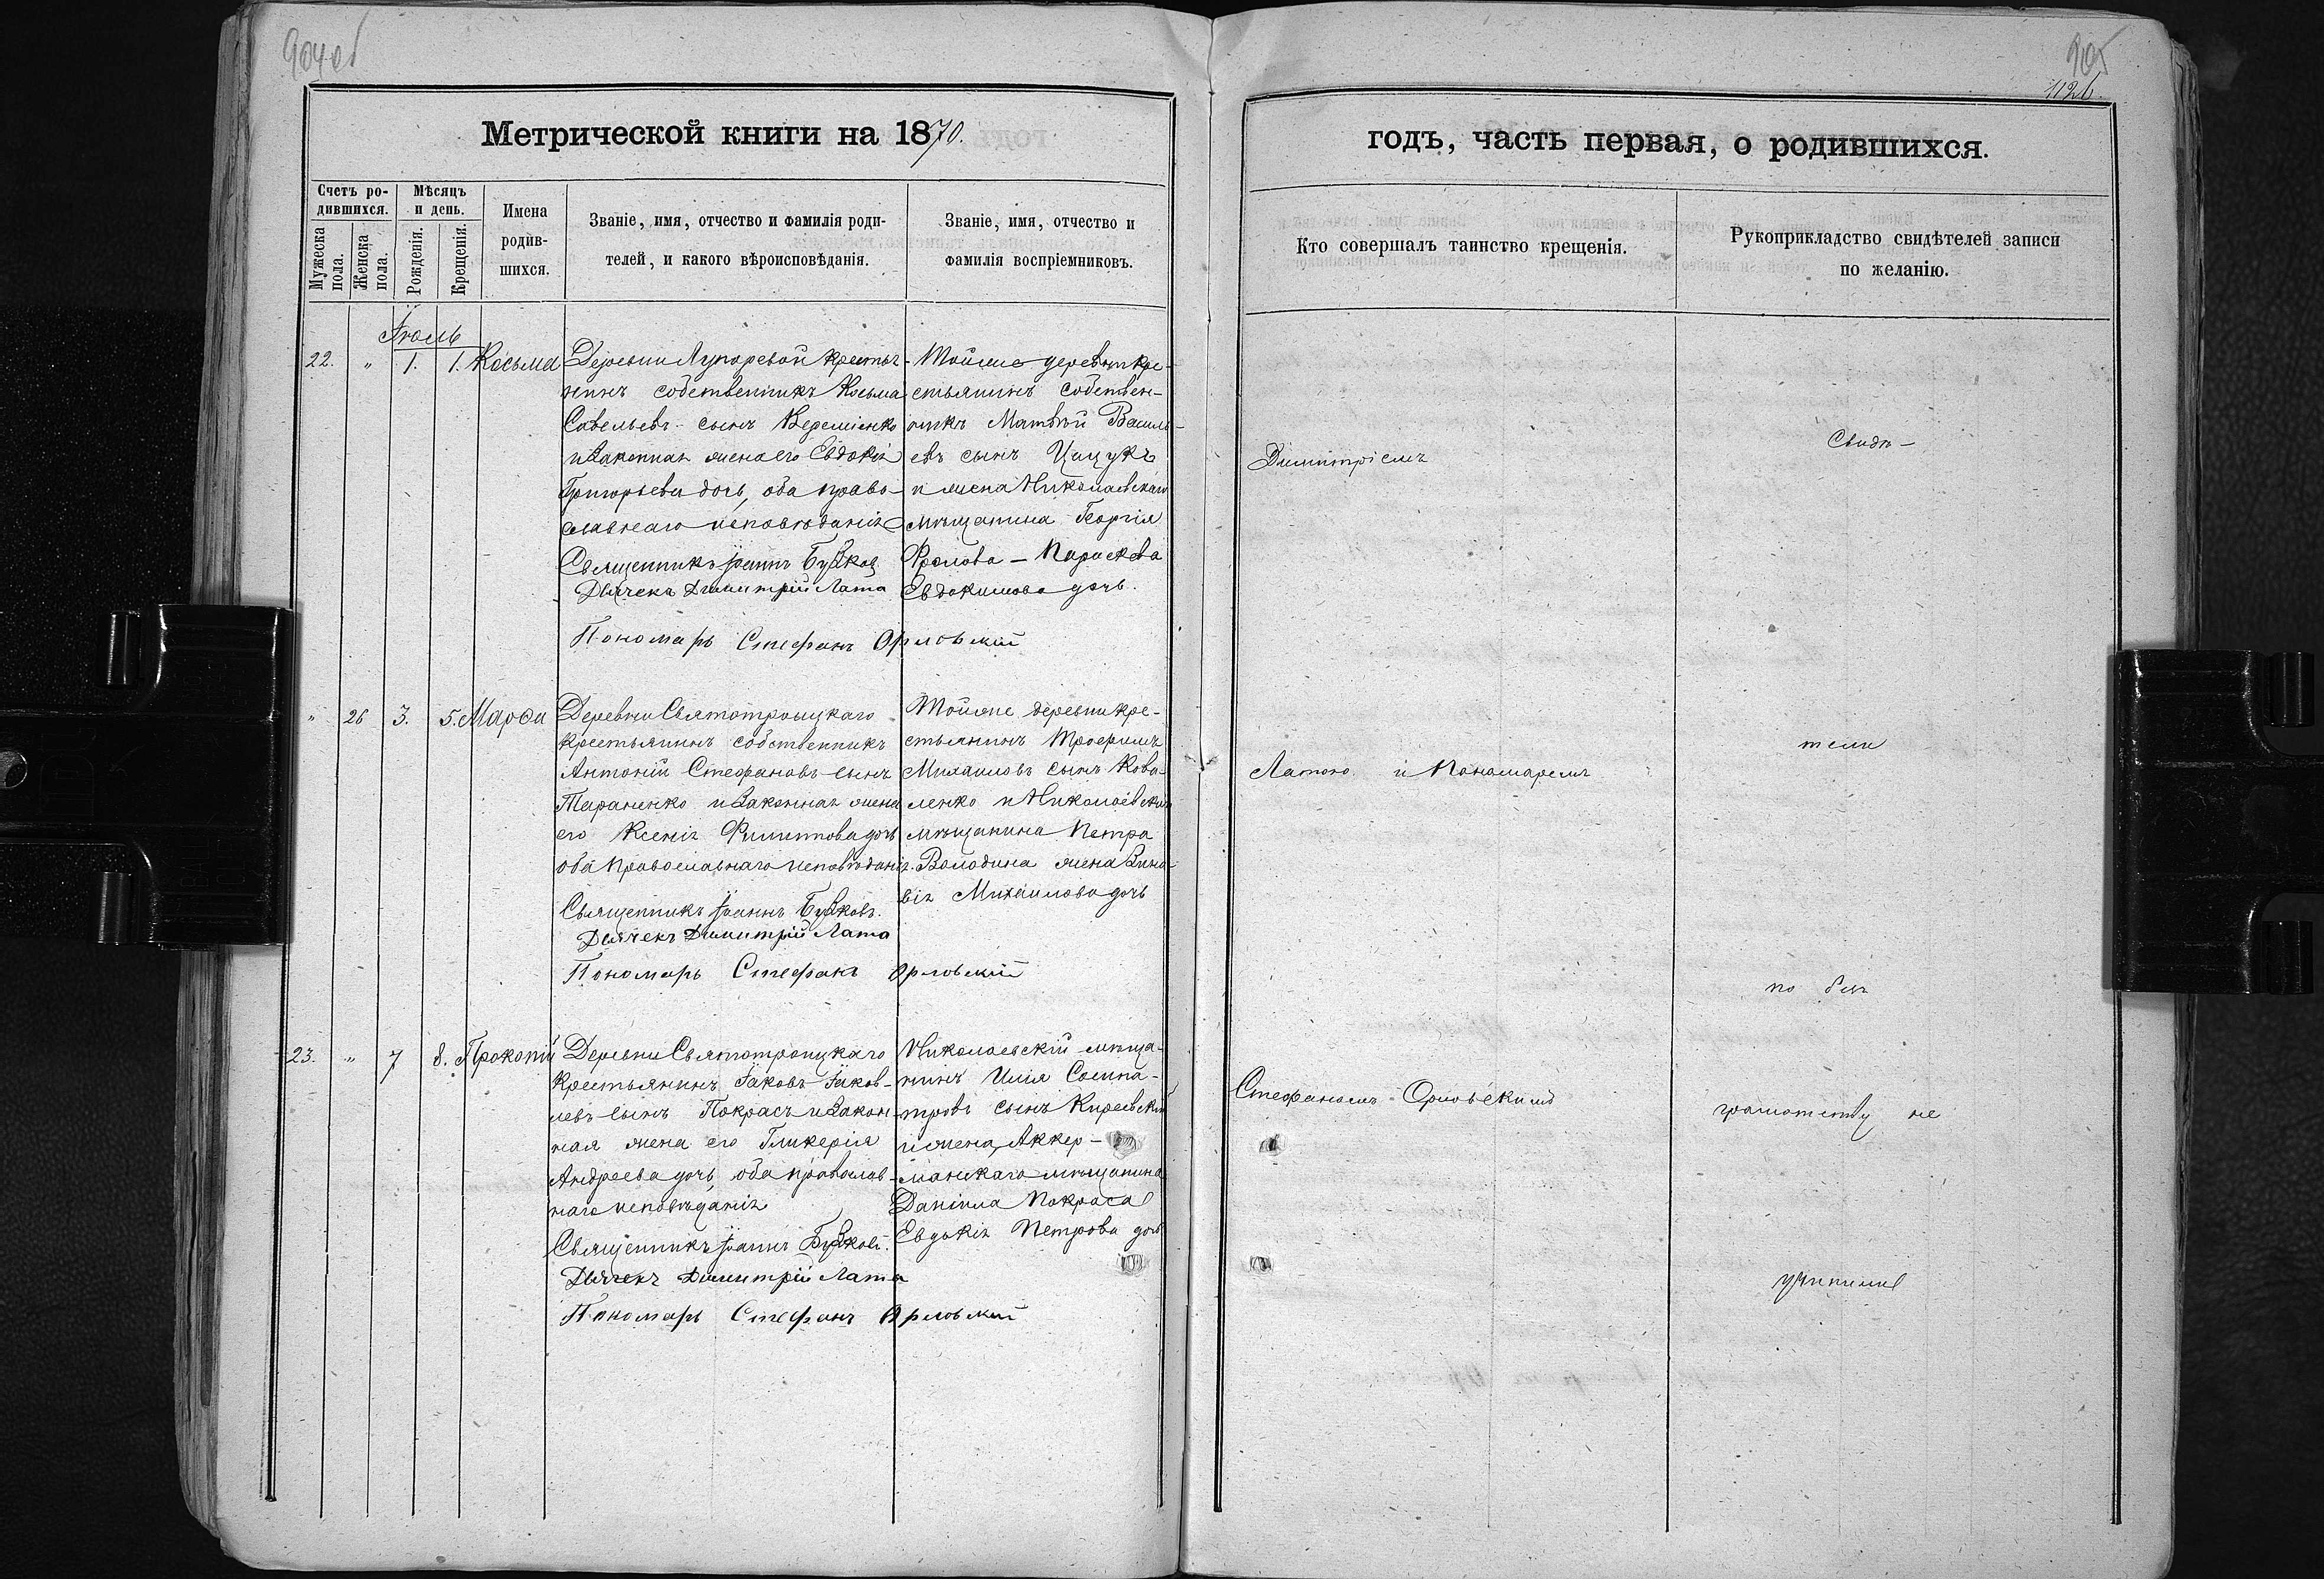 904об
Метрической книги на 1870.
Счетъ ро-
дившихся.
Мѣсяцъ
и день.
Мужеска
пола.
Женска
пола.
Рожденія.
Крещенія.
Имена
родив-
шихся.
Званіе, имя, отчество и фамилія роди-
телей, и какого вѣроисповѣданія.
Званіе, имя, отчество и
фамилія воспріемниковъ.
Іюль
22. " 1. 1. Косьма
Деревни Лупаревой кресть-
нинъ собственникъ Косьма
Савельевъ сынъ
и законная жена его Евдокія
Григорьева дочь, оба право-
славнаго исповѣданія
Священникъ Іоаннъ
Дьячекъ Димитрій Лата
Пономарь Стефанъ Орловскій
Тойже деревни кре-
стьянинъ собствен-
никъ Матвѣй Василь-
евъ сынъ Цицукъ
и жена Николаевскаго
мѣщанина Георгія
Фролова – Параскева
Евдокимова дочь.
" 26 3. 5. Марѳа
Деревни Святотроицкаго
крестьянинъ собственникъ
Антоній Стефановъ сынъ
Тараненко и законная жена
его Ксенія Филиппова дочь
оба православнаго исповѣданія.
Священникъ Іоаннъ
Дьячекъ Димитрій Лата
Пономарь Стефанъ Орловскій
Тойже деревни кре-
стьянинъ Трофимъ
Михаиловъ сынъ Кова-
ленко и Николаевскаго
мѣщанина Петра
Володина жена Зино-
вія Михаилова дочь
23. " 7 8. Прокопій
Деревни Святотроицкаго
крестьянинъ Іаковъ Іаков-
левъ сынъ Покрасъ и закон-
ная жена его Гликерія
Андреева дочь, оба православ-
наго исповѣданія
Священникъ Іоаннъ
Дьячекъ Димитрій Лата
Пономарь Стефанъ Орловскій
Николаевскій мѣща-
нинъ Илія Сосипа-
тровъ сынъ Киреевскій
и жена Аккер-
манскаго мѣщанина
Даніила Покраса
Евдокія Петрова дочь
905
1126.
годъ, часть первая, о родившихся.
Кто совершалъ таинство крещенія.
Рукоприкладство свидѣтелей записи
по желанію.
Димитріемъ
Латою и Пономаремъ
Стефаномъ Орловскимъ
Свидѣ-
тели
по без
грамотству не
учинили